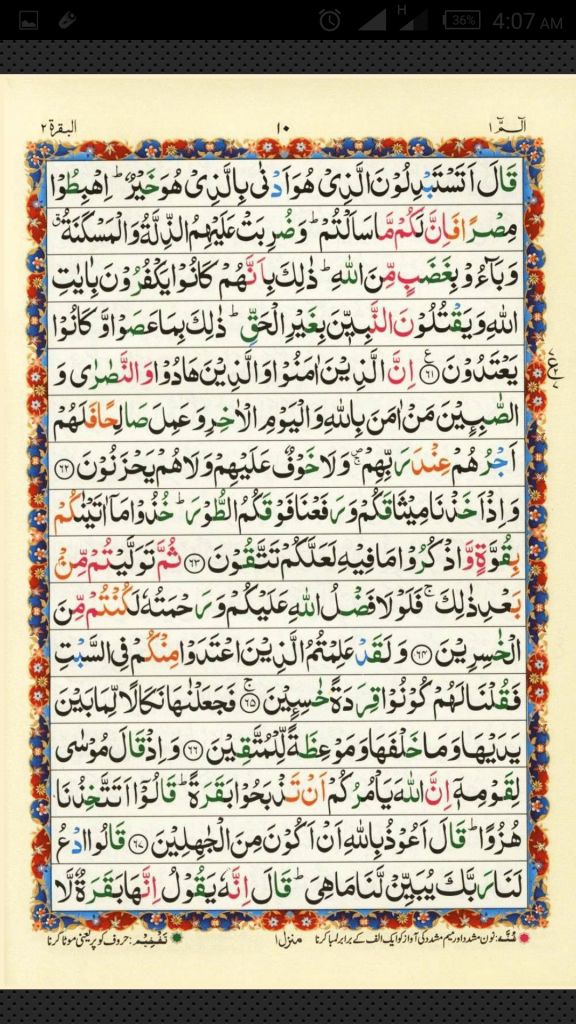 36% 4:07 AM
H
البقرة ٢ ١٠ الٓـمّٓ ١
قَالَ اَتَسْتَبْدِلُوْنَ الَّذِىْ هُوَ اَدْنٰى بِالَّذِىْ هُوَ خَيْرٌ ؕ اِهْبِطُوْا
مِصْرًا فَاِنَّ لَكُمْ مَّا سَاَلْتُمْ ؕ وَضُرِبَتْ عَلَيْهِمُ الذِّلَّةُ وَالْمَسْكَنَةُ ۗ
وَبَآءُوْ بِغَضَبٍ مِّنَ اللّٰهِ ؕ ذٰلِكَ بِاَنَّهُمْ كَانُوْا يَكْفُرُوْنَ بِاٰيٰتِ
اللّٰهِ وَيَقْتُلُوْنَ النَّبِيّٖنَ بِغَيْرِ الْحَقِّ ؕ ذٰلِكَ بِمَا عَصَوْا وَّكَانُوْا
يَعْتَدُوْنَ ﴿٦١﴾ اِنَّ الَّذِيْنَ اٰمَنُوْا وَالَّذِيْنَ هَادُوْا وَالنَّصٰرٰى وَ
الصّٰبِـِٕيْنَ مَنْ اٰمَنَ بِاللّٰهِ وَالْيَوْمِ الْاٰخِرِ وَعَمِلَ صَالِحًا فَلَهُمْ
اَجْرُهُمْ عِنْدَ رَبِّهِمْ ۚ وَلَا خَوْفٌ عَلَيْهِمْ وَلَا هُمْ يَحْزَنُوْنَ ﴿٦٢﴾
وَاِذْ اَخَذْنَا مِيْثَاقَكُمْ وَرَفَعْنَا فَوْقَكُمُ الطُّوْرَ ؕ خُذُوْا مَآ اٰتَيْنٰكُمْ
بِقُوَّةٍ وَّاذْكُرُوْا مَا فِيْهِ لَعَلَّكُمْ تَتَّقُوْنَ ﴿٦٣﴾ ثُمَّ تَوَلَّيْتُمْ مِّنْۢ
بَعْدِ ذٰلِكَ ۚ فَلَوْلَا فَضْلُ اللّٰهِ عَلَيْكُمْ وَرَحْمَتُهٗ لَكُنْتُمْ مِّنَ
الْخٰسِرِيْنَ ﴿٦٤﴾ وَلَقَدْ عَلِمْتُمُ الَّذِيْنَ اعْتَدَوْا مِنْكُمْ فِى السَّبْتِ
فَقُلْنَا لَهُمْ كُوْنُوْا قِرَدَةً خٰسِـِٕيْنَ ۚ ﴿٦٥﴾ فَجَعَلْنٰهَا نَكَالًا لِّمَا بَيْنَ
يَدَيْهَا وَمَا خَلْفَهَا وَمَوْعِظَةً لِّلْمُتَّقِيْنَ ﴿٦٦﴾ وَاِذْ قَالَ مُوْسٰى
لِقَوْمِهٖٓ اِنَّ اللّٰهَ يَاْمُرُكُمْ اَنْ تَذْبَحُوْا بَقَرَةً ؕ قَالُوْٓا اَتَتَّخِذُنَا
هُزُوًا ؕ قَالَ اَعُوْذُ بِاللّٰهِ اَنْ اَكُوْنَ مِنَ الْجٰهِلِيْنَ ﴿٦٧﴾ قَالُوا ادْعُ
لَنَا رَبَّكَ يُبَيِّنْ لَّنَا مَا هِىَ ؕ قَالَ اِنَّهٗ يَقُوْلُ اِنَّهَا بَقَرَةٌ لَّا
غُنَّه: نون مشدد اور میم مشدد کی آواز کو ایک الف کے برابر لمبا کرنا منزل ١ تَفْخِيْم: حروف کو پُر یعنی موٹا کرنا